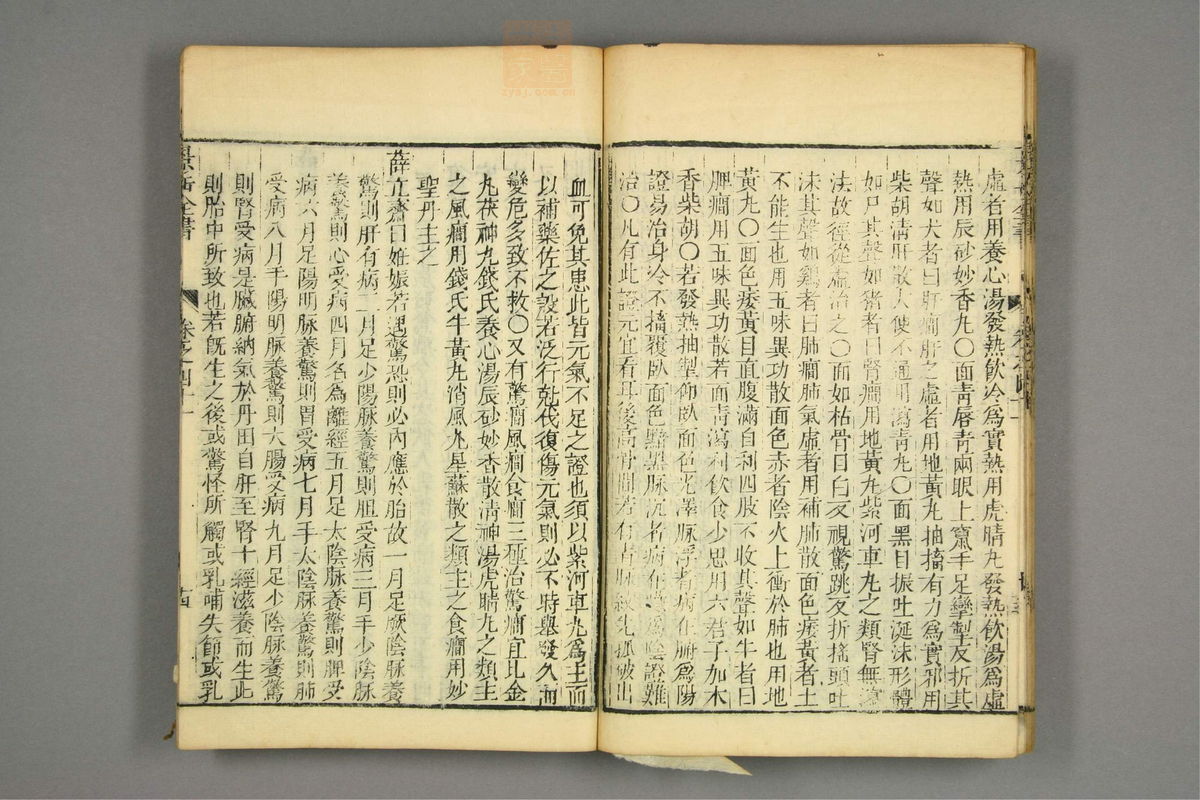 虛者用養心湯發熱飲冷爲實熱用虎睛丸發熱飲湯爲虛
熱用辰砂妙香丸〇面靑唇靑兩眼上竄手足攣掣反折其
聲如犬者曰肝癎肝之虛者用地黃丸抽搐有力爲實邪用
柴胡淸肝散大便不通用瀉靑丸〇面黑目振吐涎沫形體
如尸其聲如猪者曰腎癎用地黃丸紫河車丸之類腎無瀉
法故徑從虛治之〇面如枯骨目白反視驚跳反折搖頭吐
沫其聲如鷄者曰肺癎肺氣虛者用補肺散面色痿黃者土
不能生也用五味異功散面色赤者陰火上衝於肺也用地
黃丸〇面色痿黃目直腹滿自利四肢不收其聲如牛者曰
脾癎用五味異功散若面靑瀉利飲食少思用六君子加木
香柴胡〇若發熱抽掣仰臥面色光澤脉浮者病在腑爲陽
證易治身冷不搐覆臥面色黯黑脉沉者病在臟爲陰證難
治〇凡有此證元宜看耳後高骨間若有靑脉紋先抓破出
血可免其患此皆元氣不足之證也須以紫河車丸爲主而
以補藥佐之設若泛行尅伐復傷元氣則必不時舉發久而
變危多致不救〇又有驚癎風癎食癎三種治驚癎宜比金
丸茯神丸錢氏養心湯辰砂妙香散淸神湯虎睛丸之類主
之風癎用錢氏牛黃丸消風丸星蘇散之類主之食癎用妙
聖丹主之
薛立齋曰姙娠若遇驚恐則必內應於胎故一月足厥陰脉養
驚則肝有病二月足少陽脉養驚則胆受病三月手少陰脉
養驚則心受病四月名爲離經五月足太陰脉養驚則脾受
病六月足陽明脉養驚則胃受病七月手太陰脉養驚則肺
受病八月手陽明脉養驚則大腸受病九月足少陰脉養驚
則腎受病是臟腑納氣於丹田自肝至腎十經滋養而生此
則胎中所致也若旣生之後或驚怪所觸或乳哺失節或乳
景岳全書
卷之四十一
十四